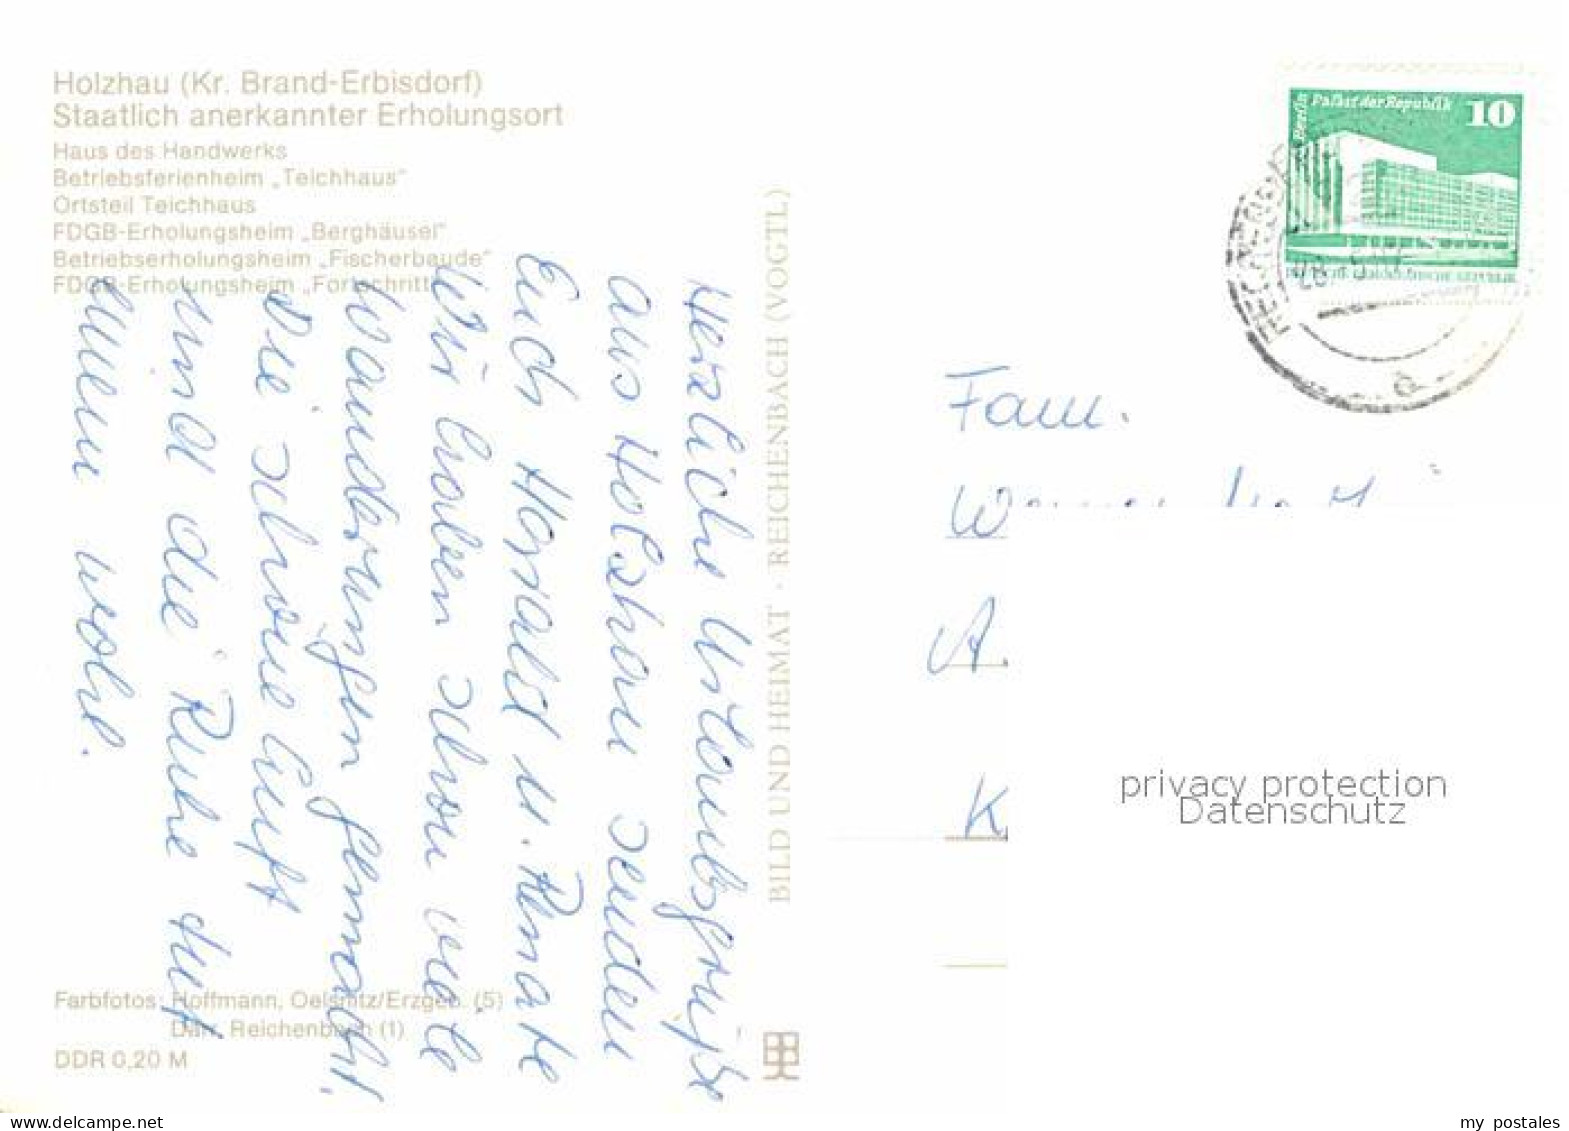 Holzhau (Kr. Brand-Erbisdorf)
Staatlich anerkannter Erholungsort
Haus des Handwerks
Betriebsferienheim „Teichhaus"
Ortsteil Teichhaus
FDGB-Erholungsheim „Berghäusel"
Betriebserholungsheim „Fischerbaude"
FDGB-Erholungsheim „Fortschritt"
Herzliche Urlaubsgrüße
aus Holzhau senden
Euch Harald u. Renate
Wir haben schon viele
Wanderungen gemacht.
Die schöne Luft
und die Ruhe tut
einem wohl.
Farbfotos: Hoffmann, Oelsnitz/Erzgeb. (5)
Darr, Reichenbach (1)
DDR 0,20 M
BILD UND HEIMAT · REICHENBACH (VOGTL)
Berlin Palast der Republik 10
Fam.
A.
K
privacy protection
Datenschutz
my postales
www.delcampe.net